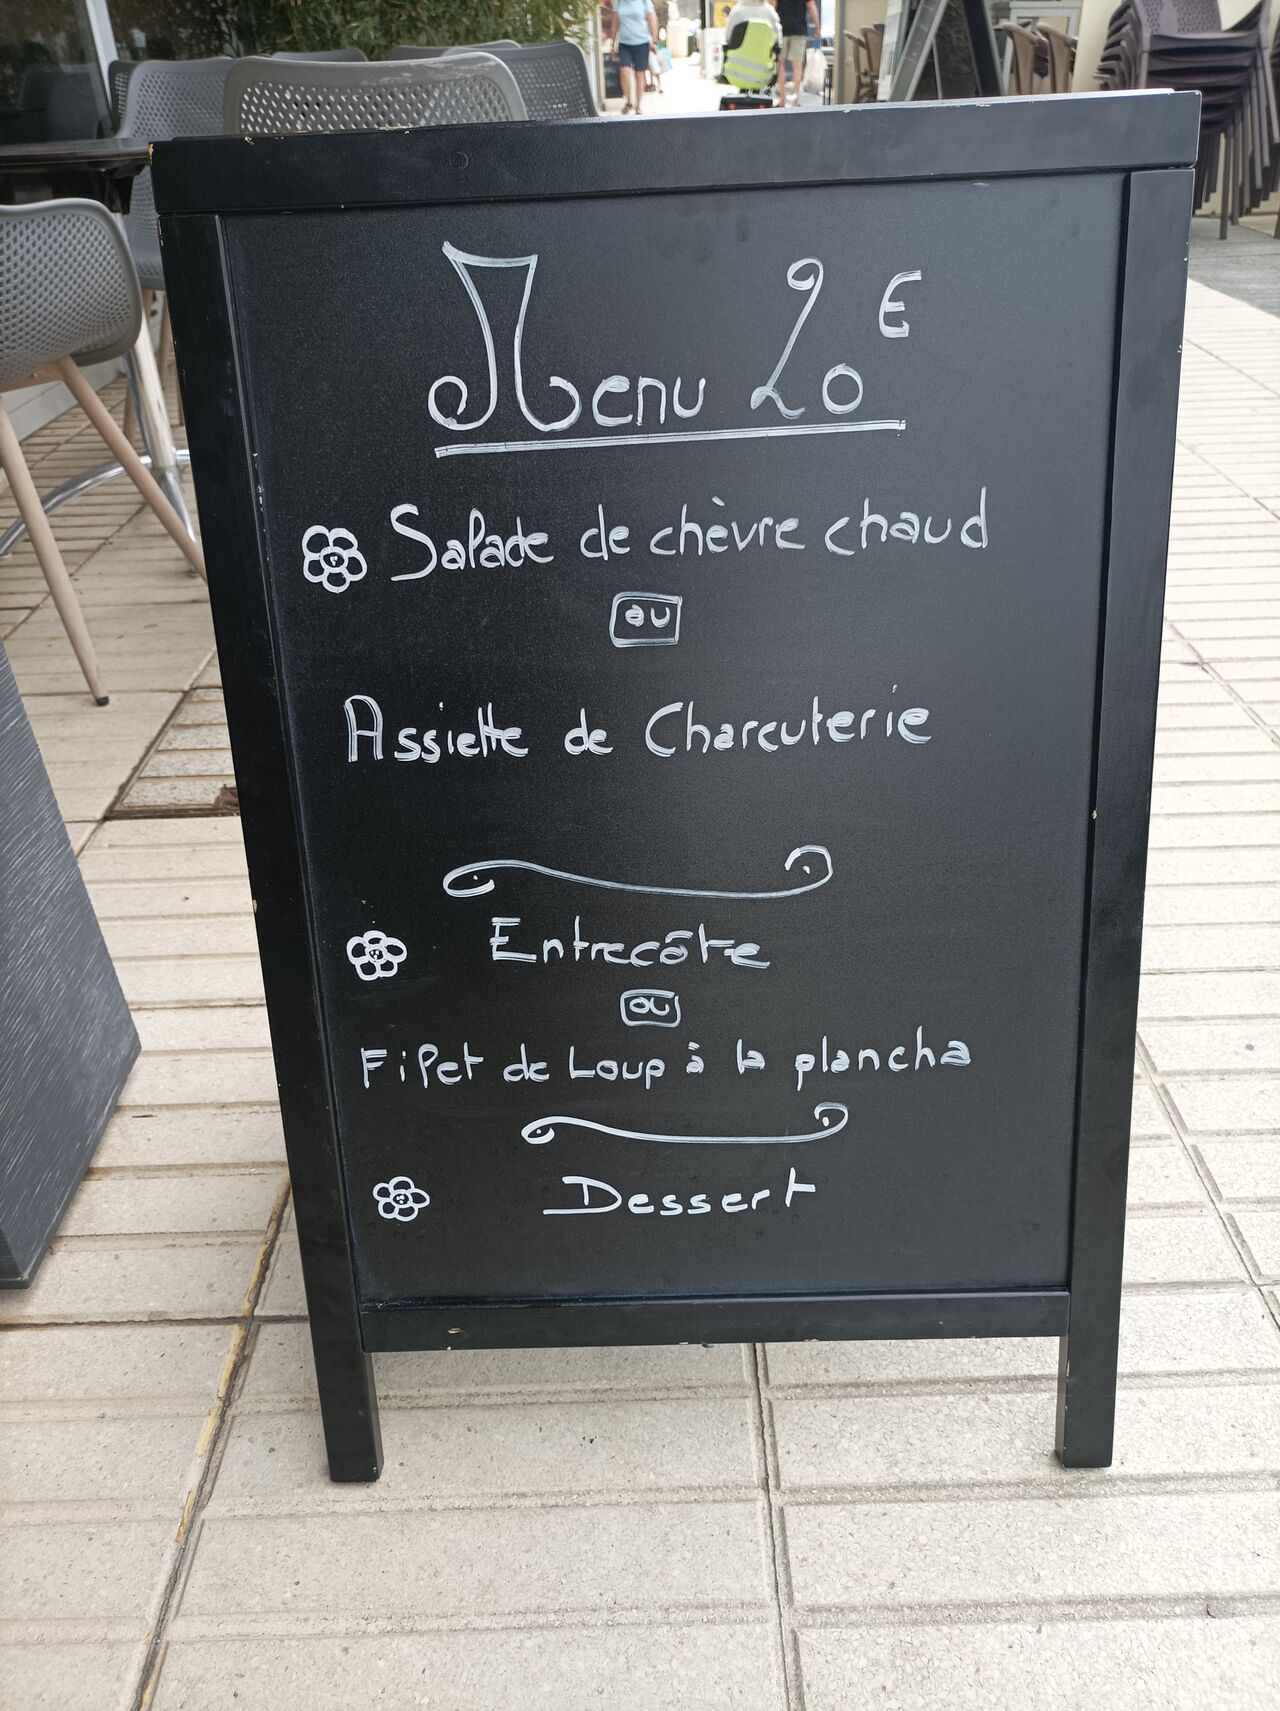 Menu 20€
Salade de chèvre chaud
ou
Assiette de Charcuterie
Entrecôte
ou
Filet de Loup à la plancha
Dessert